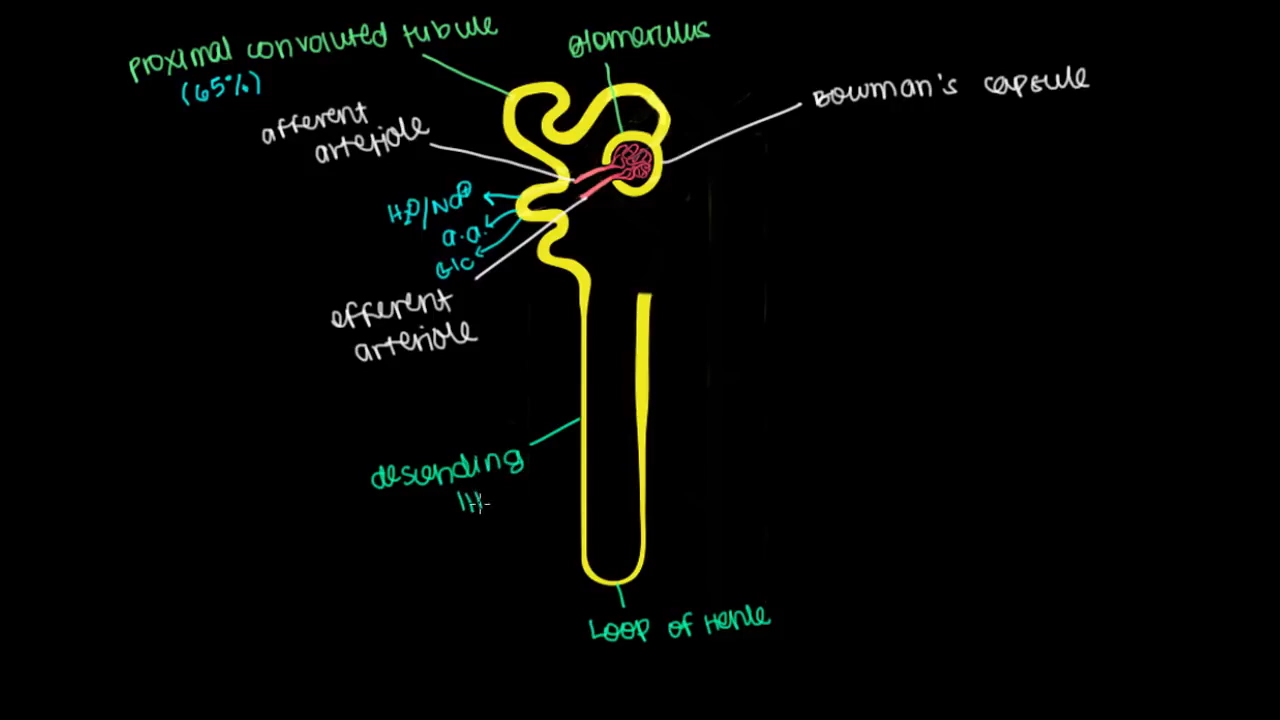 proximal convoluted tubule
(65%)
glomerulus
Bowman's capsule
afferent
arteriole
H2O/Na+
a.a.
Glc
efferent
arteriole
descending
Loop of Henle